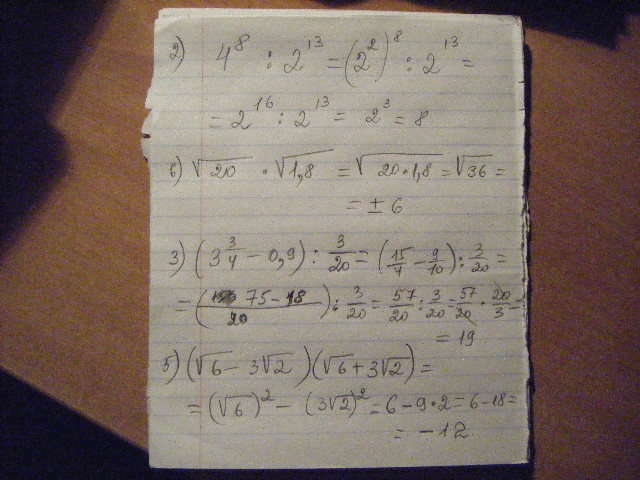 2) 4^8 : 2^13 = (2^2)^8 : 2^13 =
= 2^16 : 2^13 = 2^3 = 8
6) √20 · √1,8 = √20·1,8 = √36 =
= ± 6
3) (3 3/4 − 0,9) : 3/20 = (15/4 − 9/10) : 3/20 =
= (75 − 18 / 20) : 3/20 = 57/20 : 3/20 = 57/20 · 20/3 =
= 19
5) (√6 − 3√2)(√6 + 3√2) =
= (√6)^2 − (3√2)^2 = 6 − 9·2 = 6 − 18 =
= −12